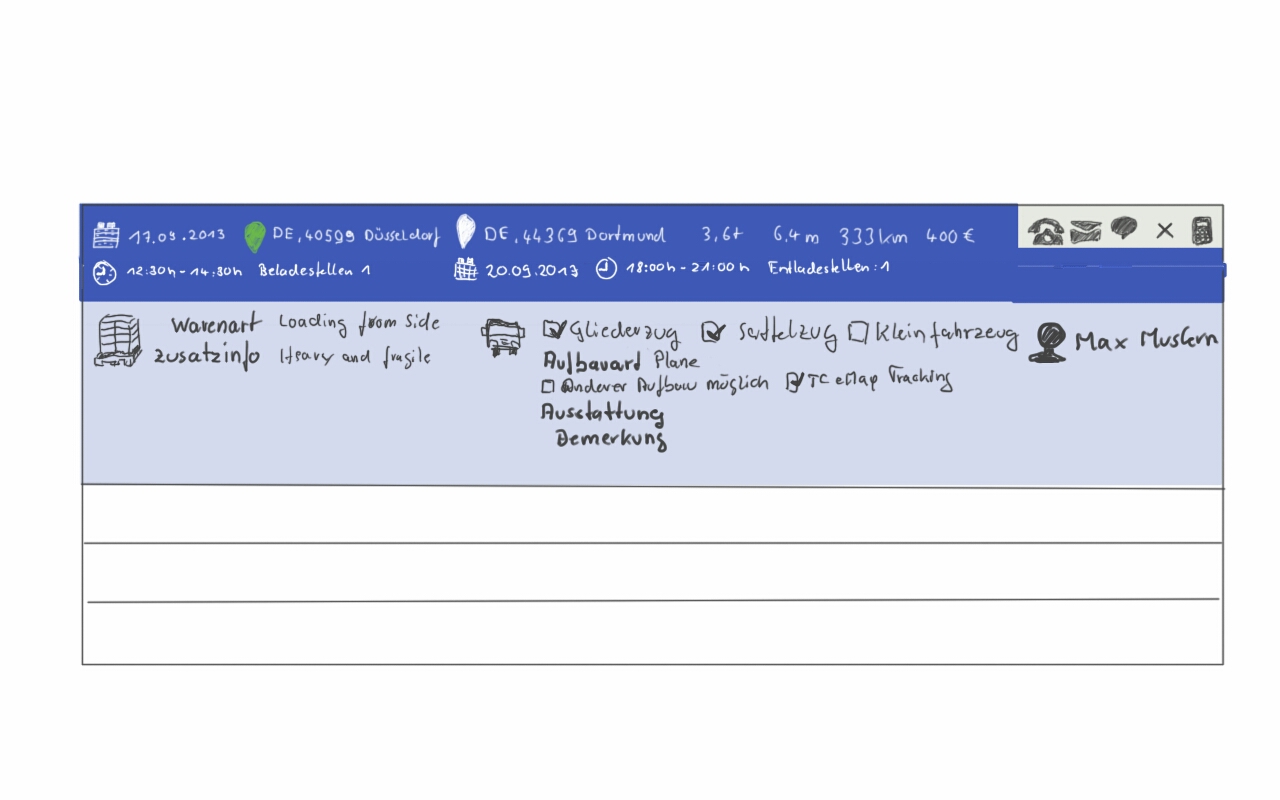 17.09.2013 DE, 40599 Düsseldorf DE, 44369 Dortmund 3,6t 6,4m 333km 400 €
12:30h - 14:30h Beladestellen 1 20.09.2013 18:00h - 21:00h Entladestellen: 1
Warenart Loading from side
Zusatzinfo Heavy and fragile
Gliederzug Sattelzug Kleinfahrzeug
Aufbauart Plane
Anderer Aufbau möglich TC eMap Tracking
Ausstattung
Bemerkung
Max Mustern